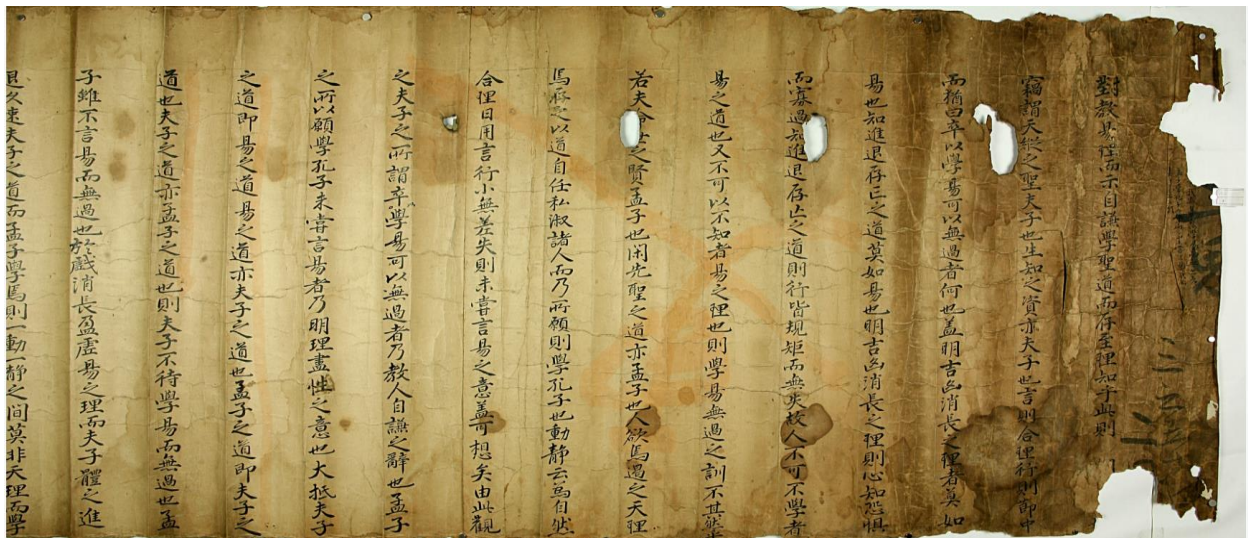 對教某惶而示目議學聖道而存至理知乎此則
竊謂天縱之聖夫子也生知之資亦夫子也言則合理行則節中
而猶曰卒以學易可以無過者何也盖明吉凶消長之理者莫如
易也知進退存亡之道莫如易也明吉凶消長之理則心知恐惧
而寡過知進退存亡之道則行皆規矩而無失故人不可不學者
易之道也又不可以不知者易之理也則學易無過之訓不其然
若夫命世之賢孟子也闲先聖之道亦孟子也人欲焉遏之天理
焉存之以道自任私淑諸人而乃所願則學孔子也動静云為自然
合理日用言行小無差失則未甞言易之意盖可想矣由此觀
之夫子之所謂卒學易可以無過者乃教人自謙之辭也孟子
之所以願學孔子未甞言易者乃明理盡性之意也大抵夫子
之道即易之道易之道亦夫子之道也孟子之道即夫子之
道也夫子之道亦孟子之道也則夫子不待學易而無過也孟
子雖不言易而無過也於戱消長盈虚易之理而夫子體之進
退久速夫子之道而孟子學焉則一動一静之间莫非天理而學